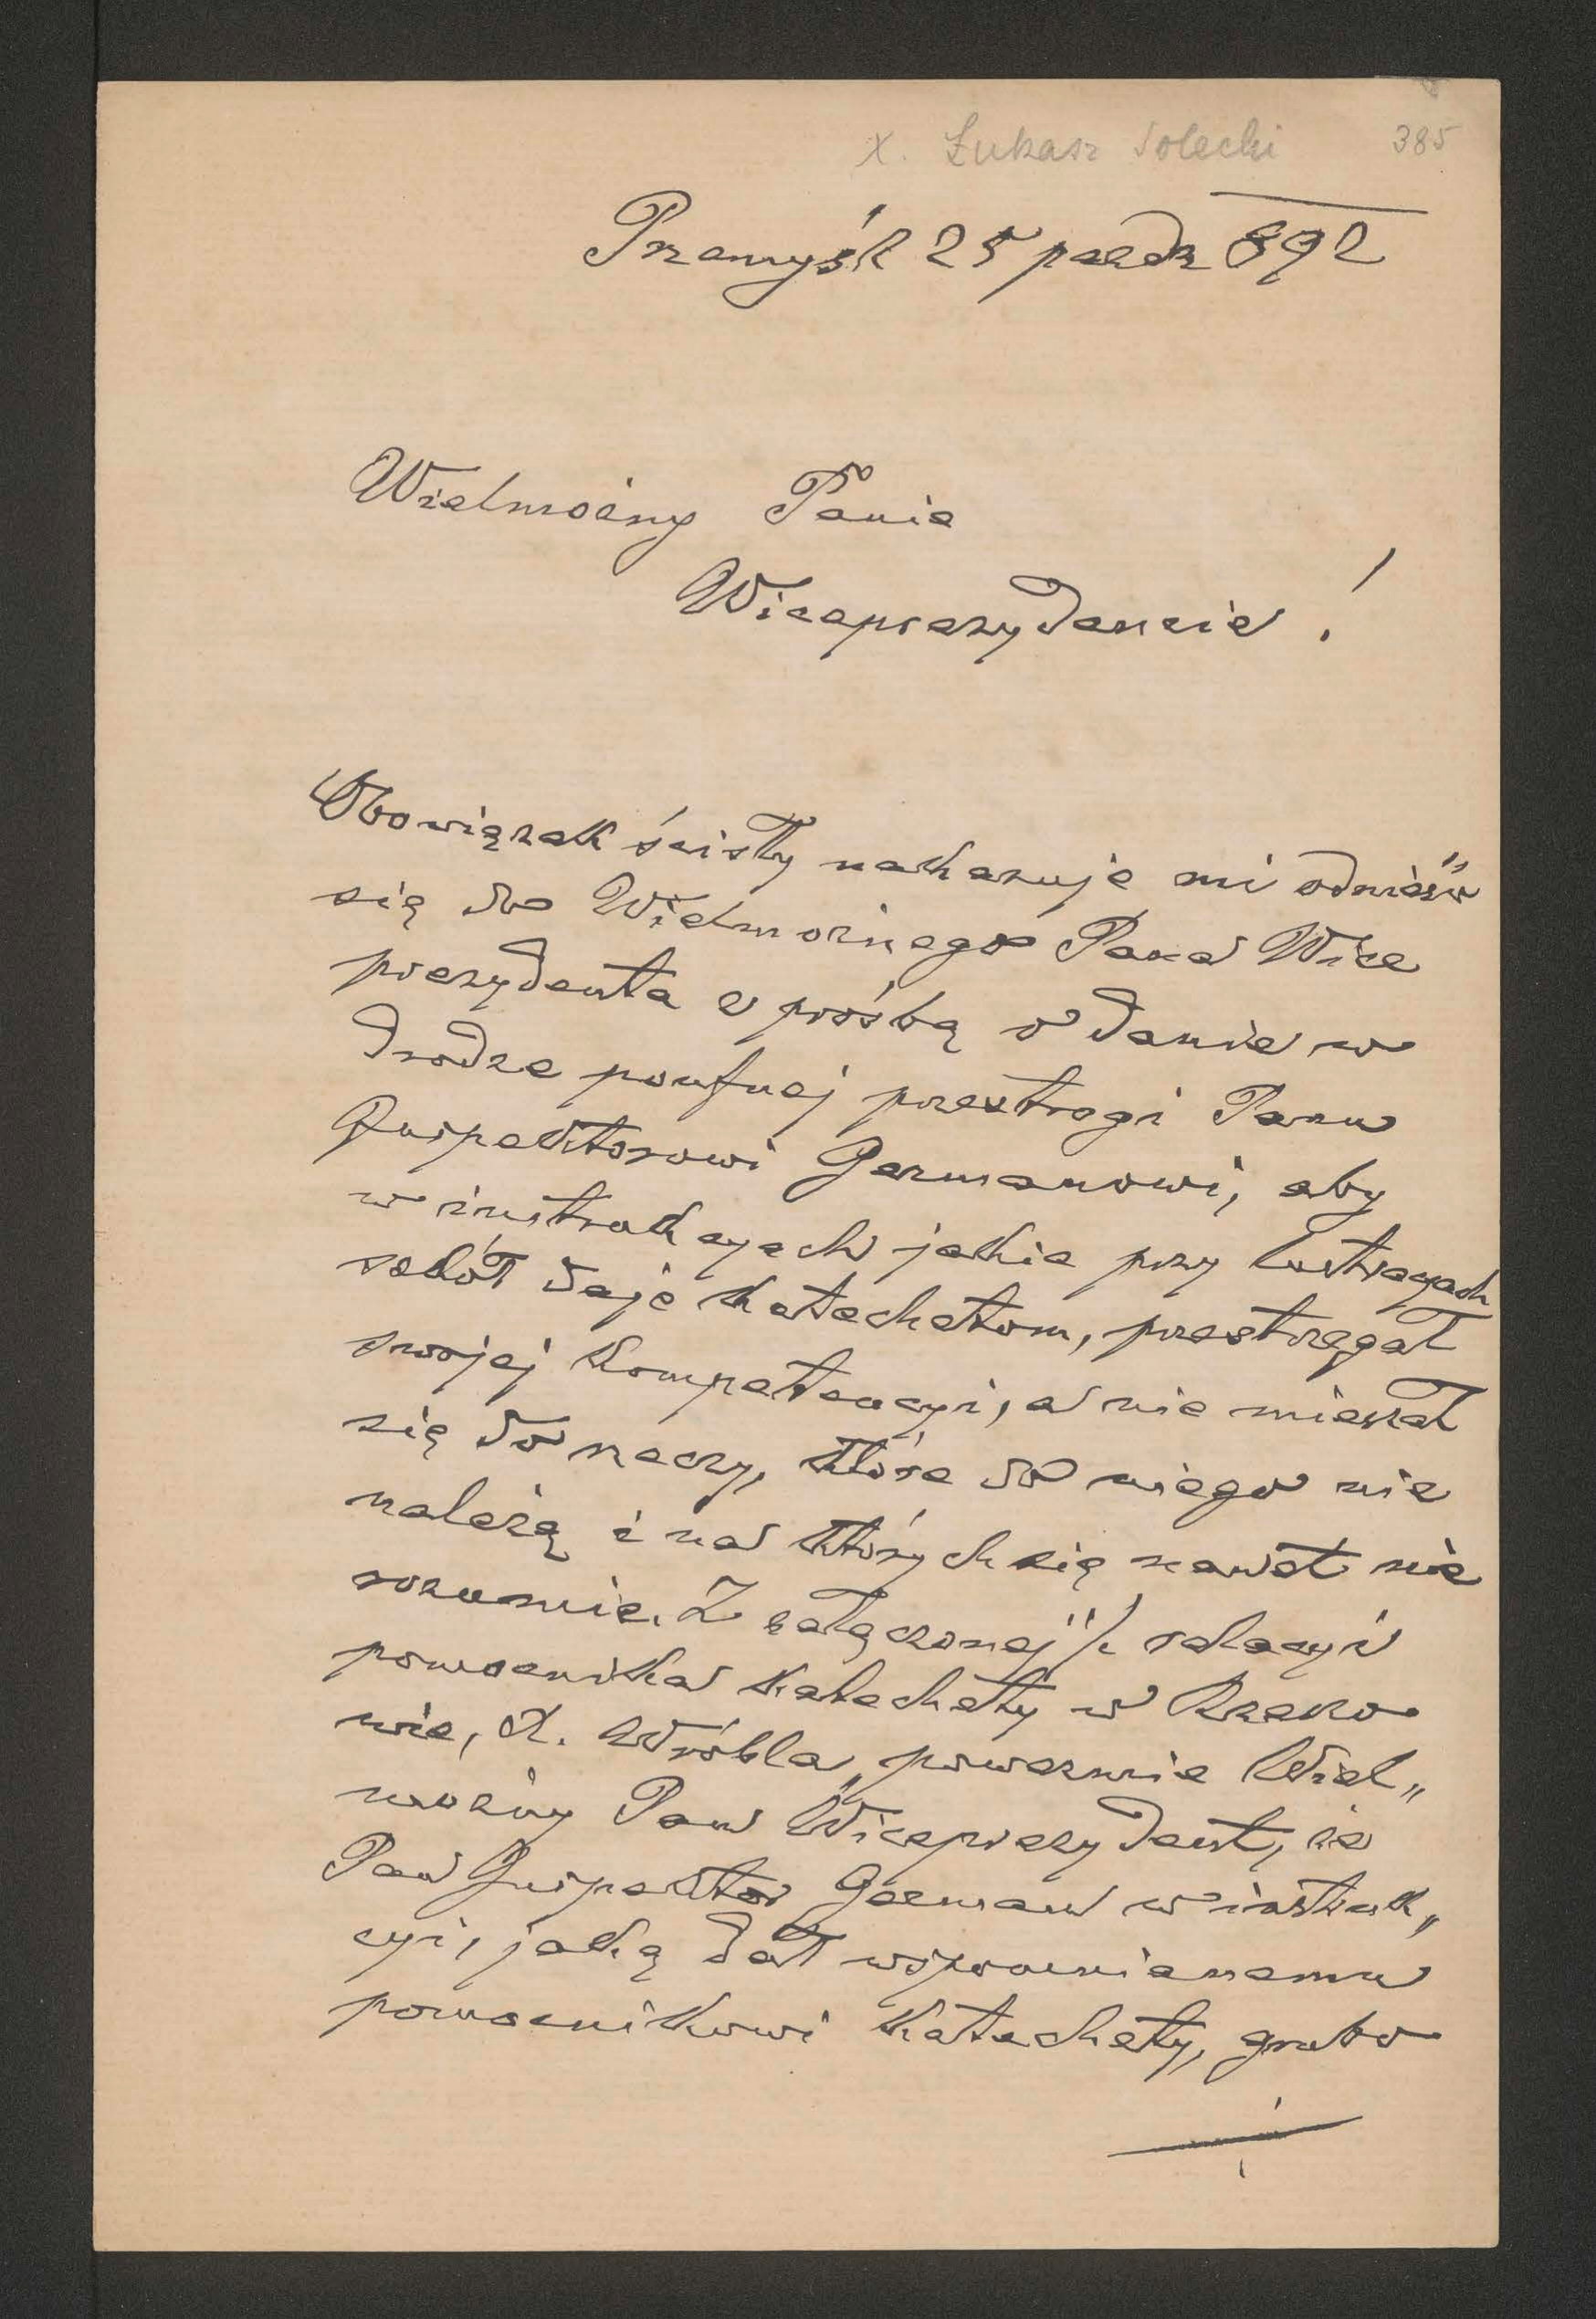 X. Łukasz Solecki 385
Przemyśl 25 paźdz 892
Wielmożny Panie
Wiceprezydencie!
Obowiązek ścisły nakazuje mi odnieść
się do Wielmożnego Pana Wice
prezydenta z prośbą o danie w
drodze poufnej przestrogi Panu
Inspektorowi Germanowi, aby
w instrukcyach jakie przy lustracyach
szkół daje katechetom, przestrzegał
swojej kompetencyi, a nie mieszał
się do rzeczy, które do niego nie
należą i na których się nawet nie
rozumie. Z załączonej /. relacyi
pomocnika katechety w Rzeszo
wie, X. Wróbla, poweźmie Wiel„
możny Pan Wiceprezydent, że
Pan Inspektor German w instruk„
cyi, jaką dał wspomnianemu
pomocnikowi katechety, grubo